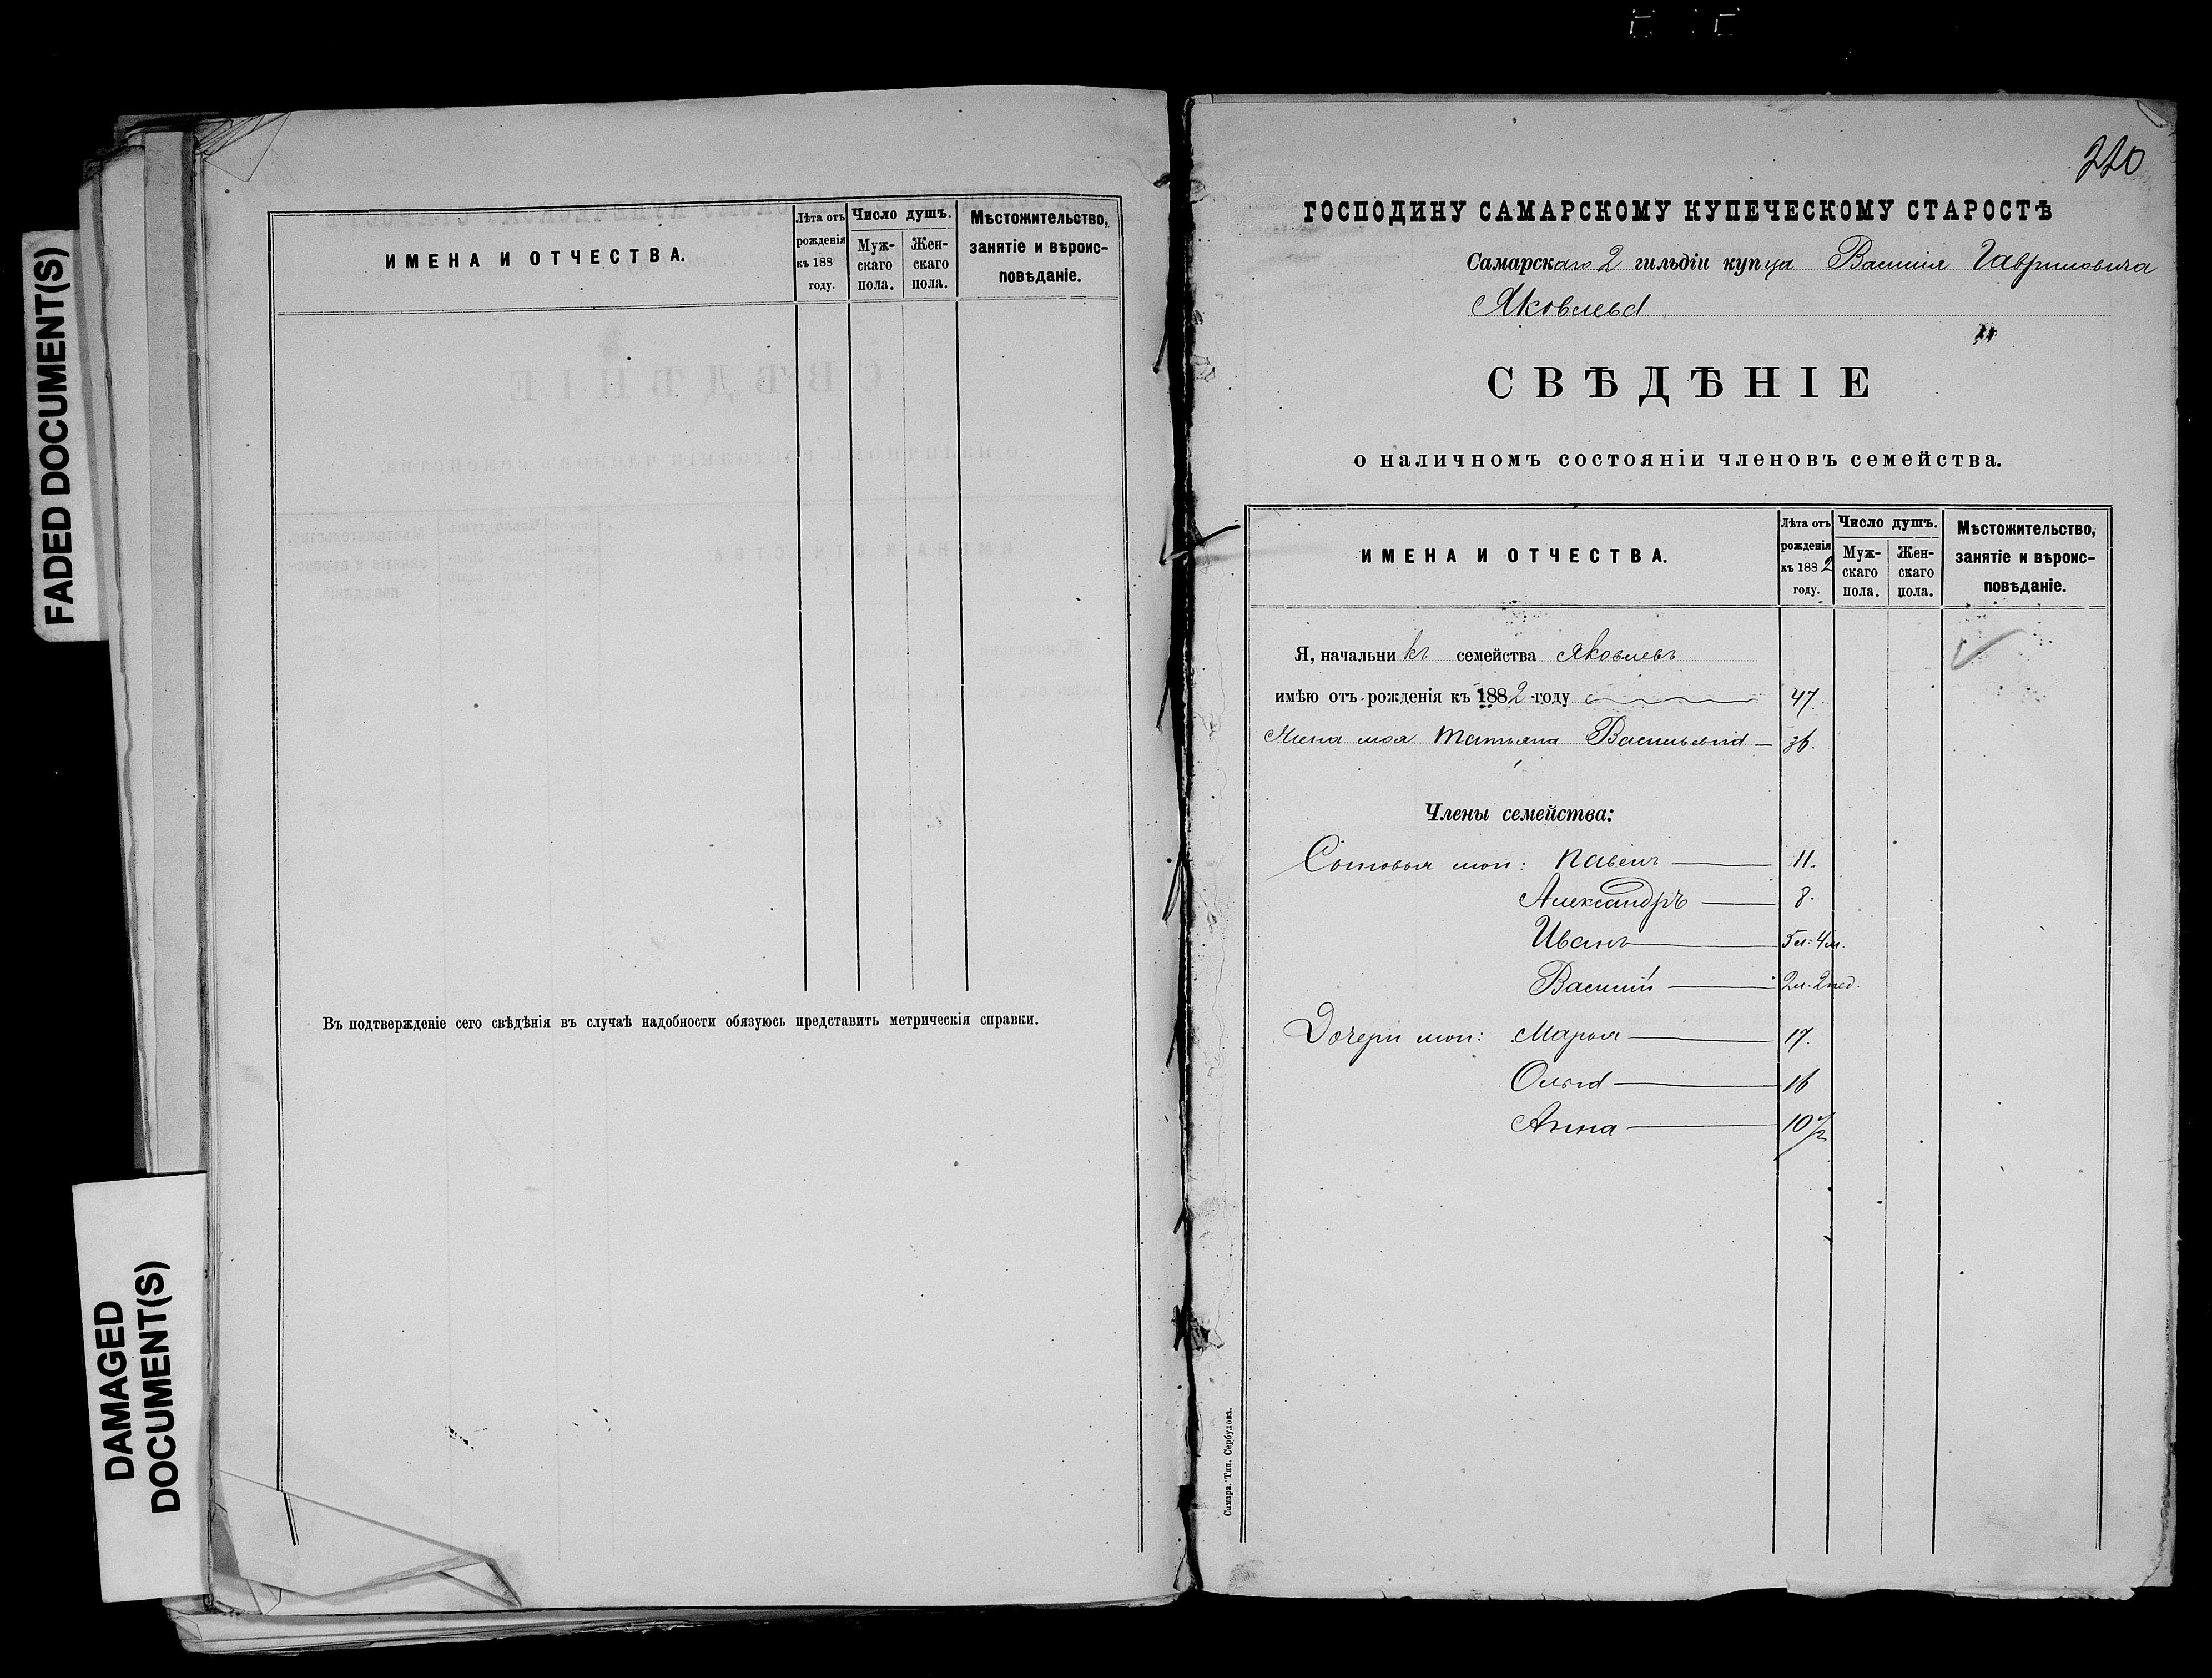 FADED DOCUMENT(S)
DAMAGED
DOCUMENT(S)
ИМЕНА И ОТЧЕСТВА.
Лѣта отъ рожденія къ 188 году.
Число душъ.
Мужскаго пола.
Женскаго пола.
Мѣстожительство, занятіе и вѣроисповѣданіе.
Въ подтвержденіе сего свѣдѣнія въ случаѣ надобности обязуюсь представить метрическія справки.
220
ГОСПОДИНУ САМАРСКОМУ КУПЕЧЕСКОМУ СТАРОСТѢ
Самарскаго 2 гильдіи купца Василія Гавриловича
Яковлева
СВѢДѢНІЕ
о наличномъ состояніи членовъ семейства.
ИМЕНА И ОТЧЕСТВА.
Лѣта отъ рожденія къ 1882 году.
Число душъ.
Мужскаго пола.
Женскаго пола.
Мѣстожительство, занятіе и вѣроисповѣданіе.
Я, начальникъ семейства Яковлевъ
имѣю отъ рожденія къ 1882 году 47.
Жена моя Татьяна Васильевна — 36.
Члены семейства:
Сыновья мои: Павелъ — 11.
Александръ — 8.
Иванъ — 5 л. 4 м.
Василій — 2 м. 2 нед.
Дочери мои: Марья — 17.
Ольга — 16
Анна — 10 1/2
Самара. Тип. Сербулова.